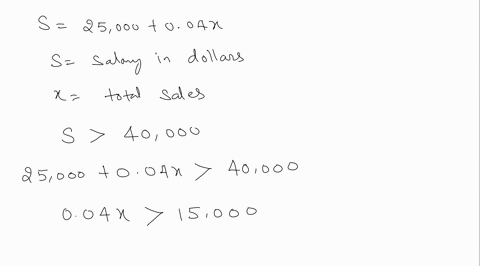 S = 25,000 + 0.04x
S = Salary in dollars
x = total sales
S > 40,000
25,000 + 0.04x > 40,000
0.04x > 15,000